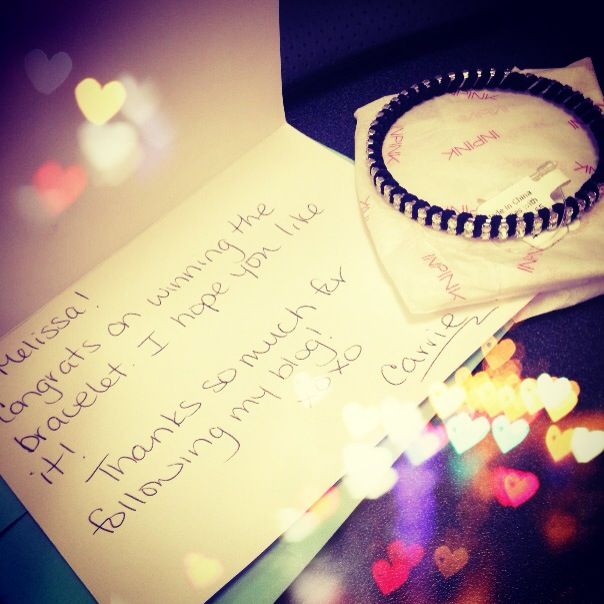 Melissa!
Congrats on winning the
bracelet. I hope you like
it!
Thanks so much for
following my blog!
xoxo
Carrie
INPINK
INPINK
INPINK
INPINK
INPINK
Made in China